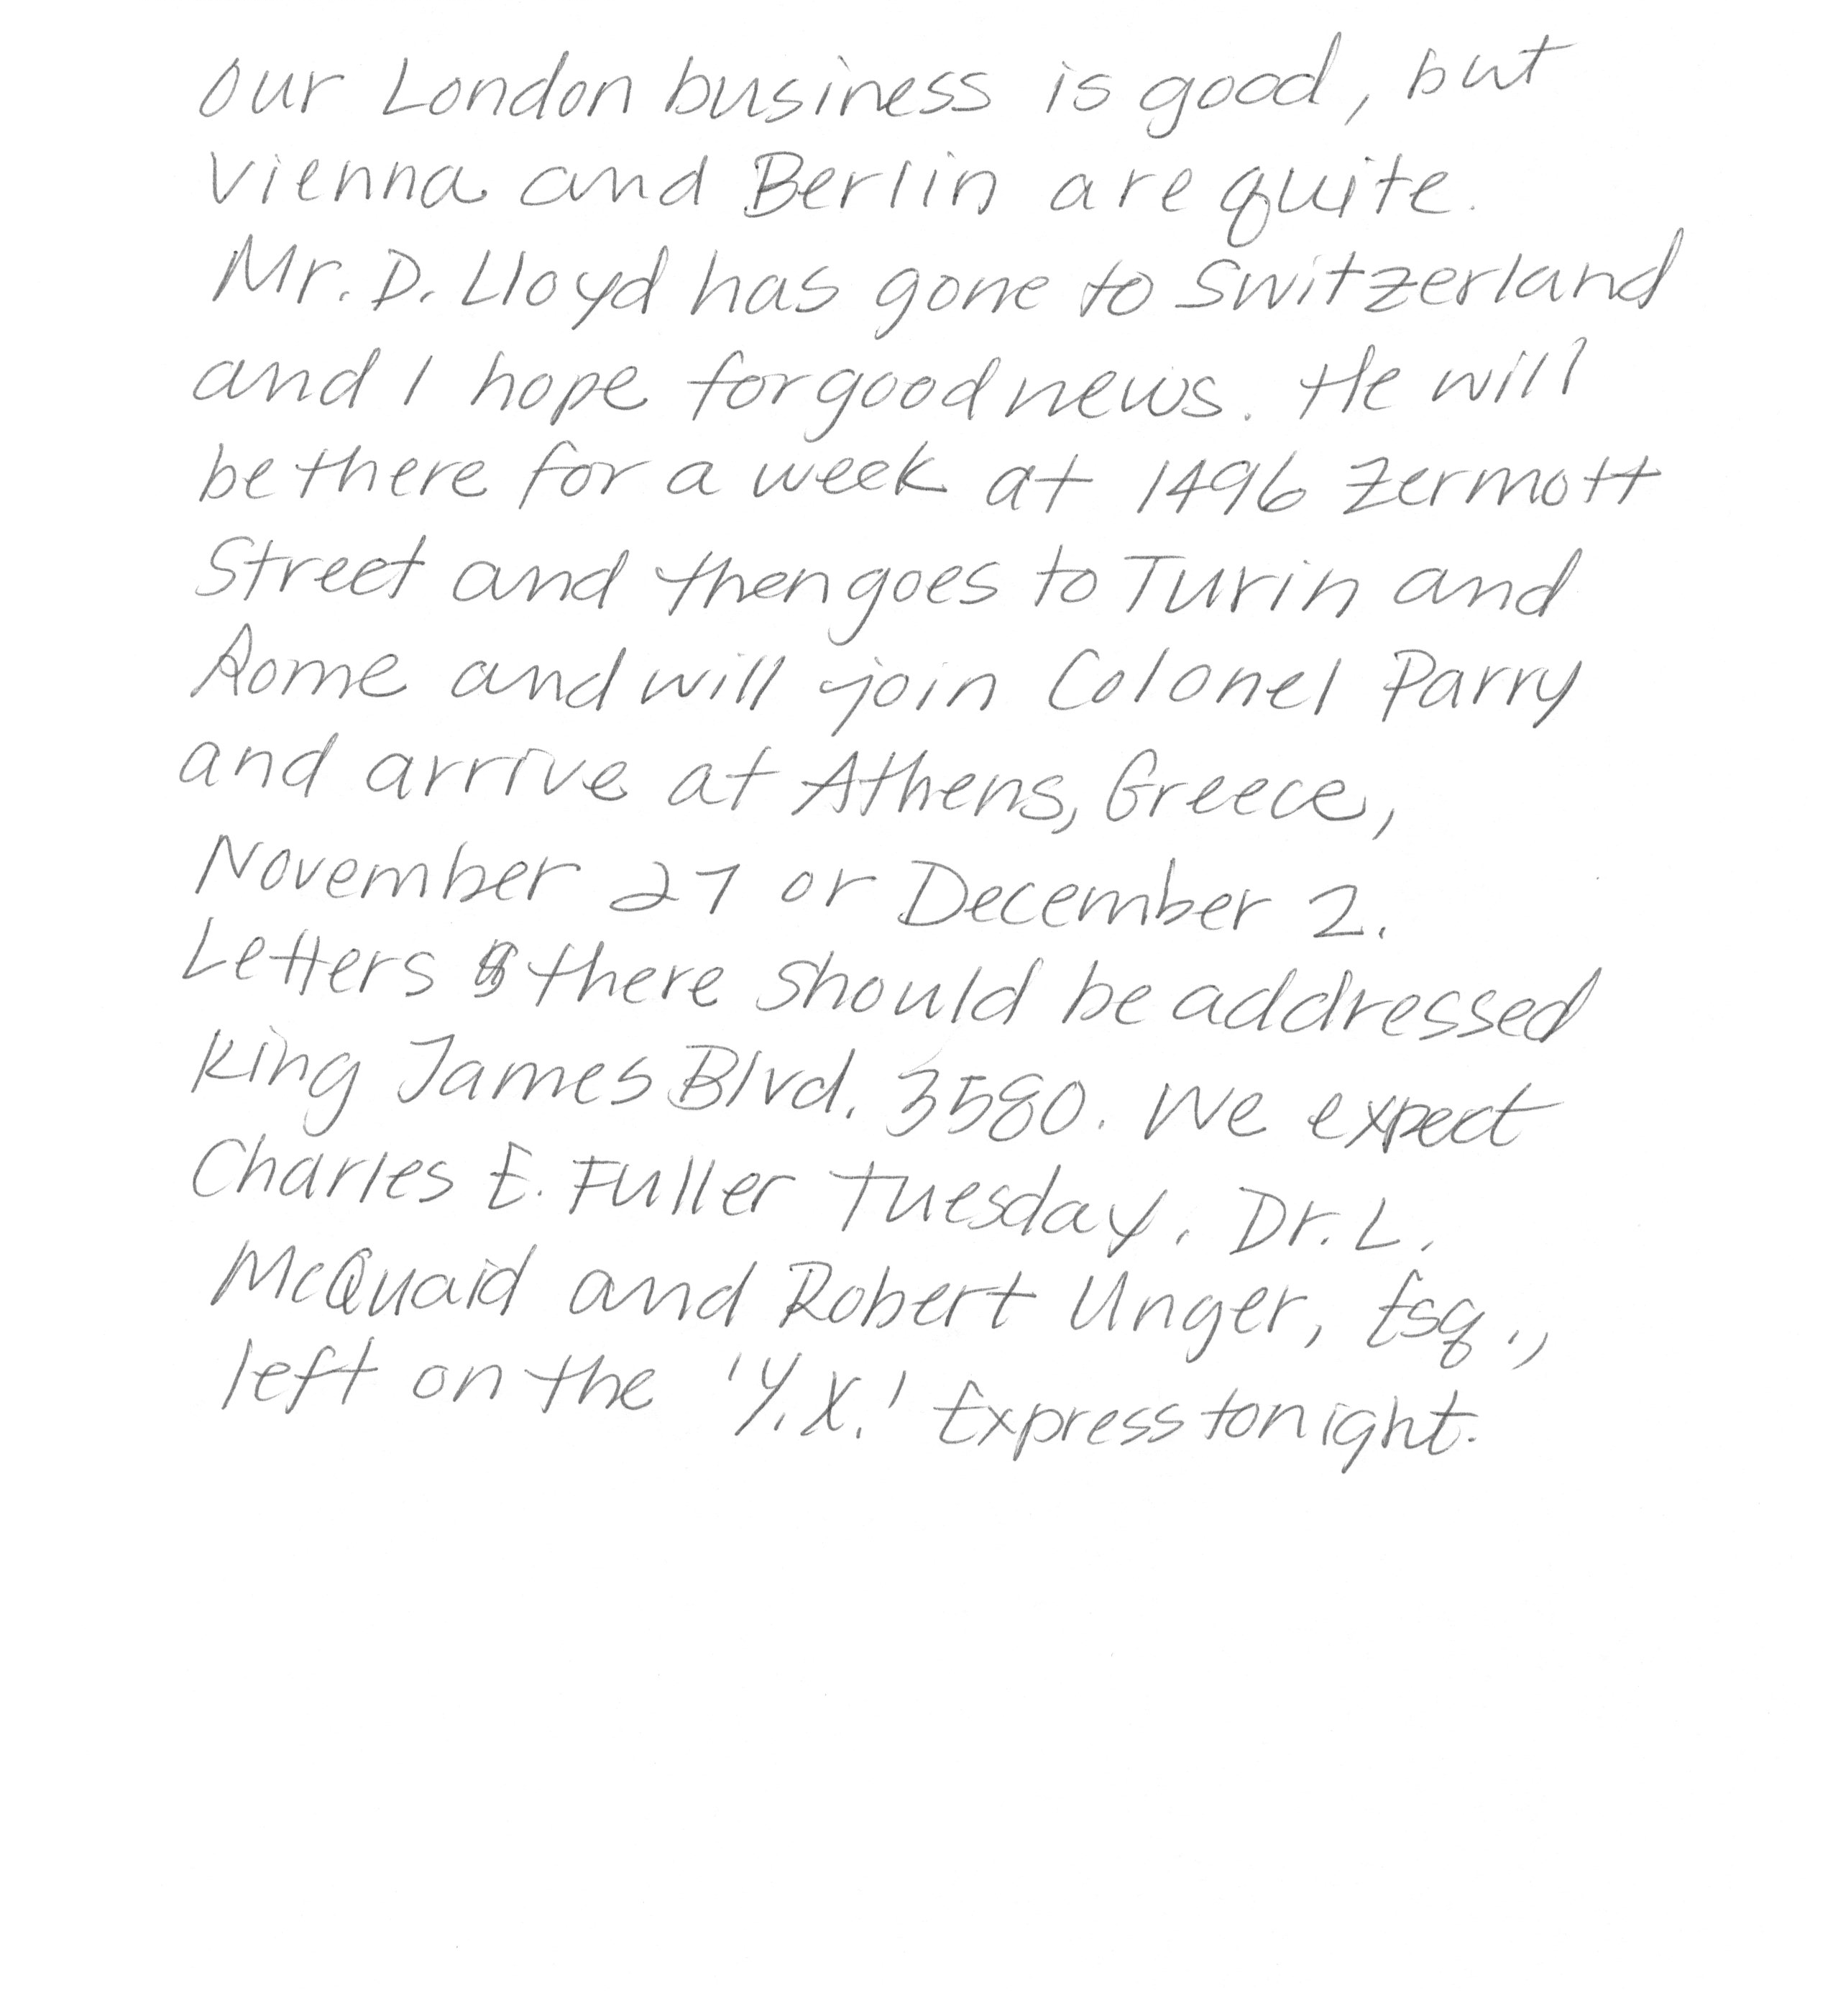 our London business is good, but
Vienna and Berlin are quite.
Mr. D. Lloyd has gone to Switzerland
and I hope for good news. He will
be there for a week at 1496 Zermott
Street and then goes to Turin and
Rome and will join Colonel Parry
and arrive at Athens, Greece,
November 27 or December 2.
Letters there should be addressed
King James Blvd. 3580. We expect
Charles E. Fuller Tuesday. Dr. L.
McQuaid and Robert Unger, Esq.,
left on the 'Y.X.' Express tonight.